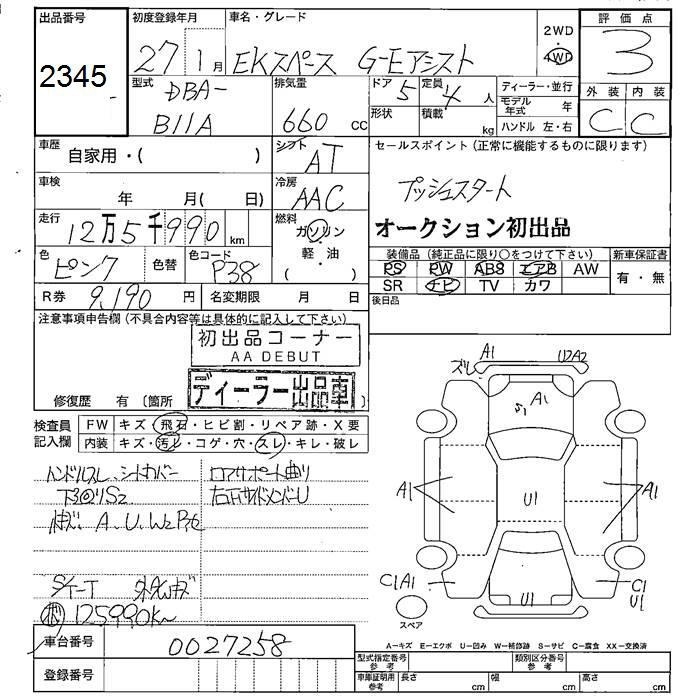 出品番号
2345
初度登録年月
27年1月
車名・グレード
EKスペース G-Eアシスト
2WD
4WD
評価点
3
型式
DBA-
B11A
排気量
660 CC
ドア
5
定員
4人
形状
積載
kg
ディーラー・並行
モデル年式
年
ハンドル 左・右
外装
内装
C
C
車歴
自家用・( )
シフト
AT
セールスポイント(正常に機能するものに限ります)
プッシュスタート
オークション初出品
車検
年 月( 日)
冷房
AAC
走行
12万5千990 km
燃料
ガソリン
・
軽・油
( )
色
ピンク
色替
色コード
P38
装備品(純正品に限り○をつけて下さい)
新車保証書
PS PW ABS エアB AW
SR ナビ TV カワ
有・無
R券
9,190円
名変期限
月 日
後日品
注意事項申告欄(不具合内容等は具体的に記入して下さい)
初出品コーナー
AA DEBUT
ディーラー出品車
修復歴 有(箇所
検査員
記入欄
FW キズ・飛石・ヒビ割・リペア跡・X要
内装 キズ・汚レ・コゲ・穴・スレ・キレ・破レ
ハンドルスレ、シートカバー
下回りS2
A.U.W2
ロアサポート曲り
125990K~
車台番号
0027258
登録番号
ズレ
A1
U2A2
A1
A1
U1
A1
C1A1
U1
C1
U1
スペア
A-キズ E-エクボ U-凹み W-補修跡 S-サビ C-腐食 XX-交換済
型式指定番号
参考
類別区分番号
参考
車庫証明用
参考
長さ
cm
幅
cm
高さ
cm